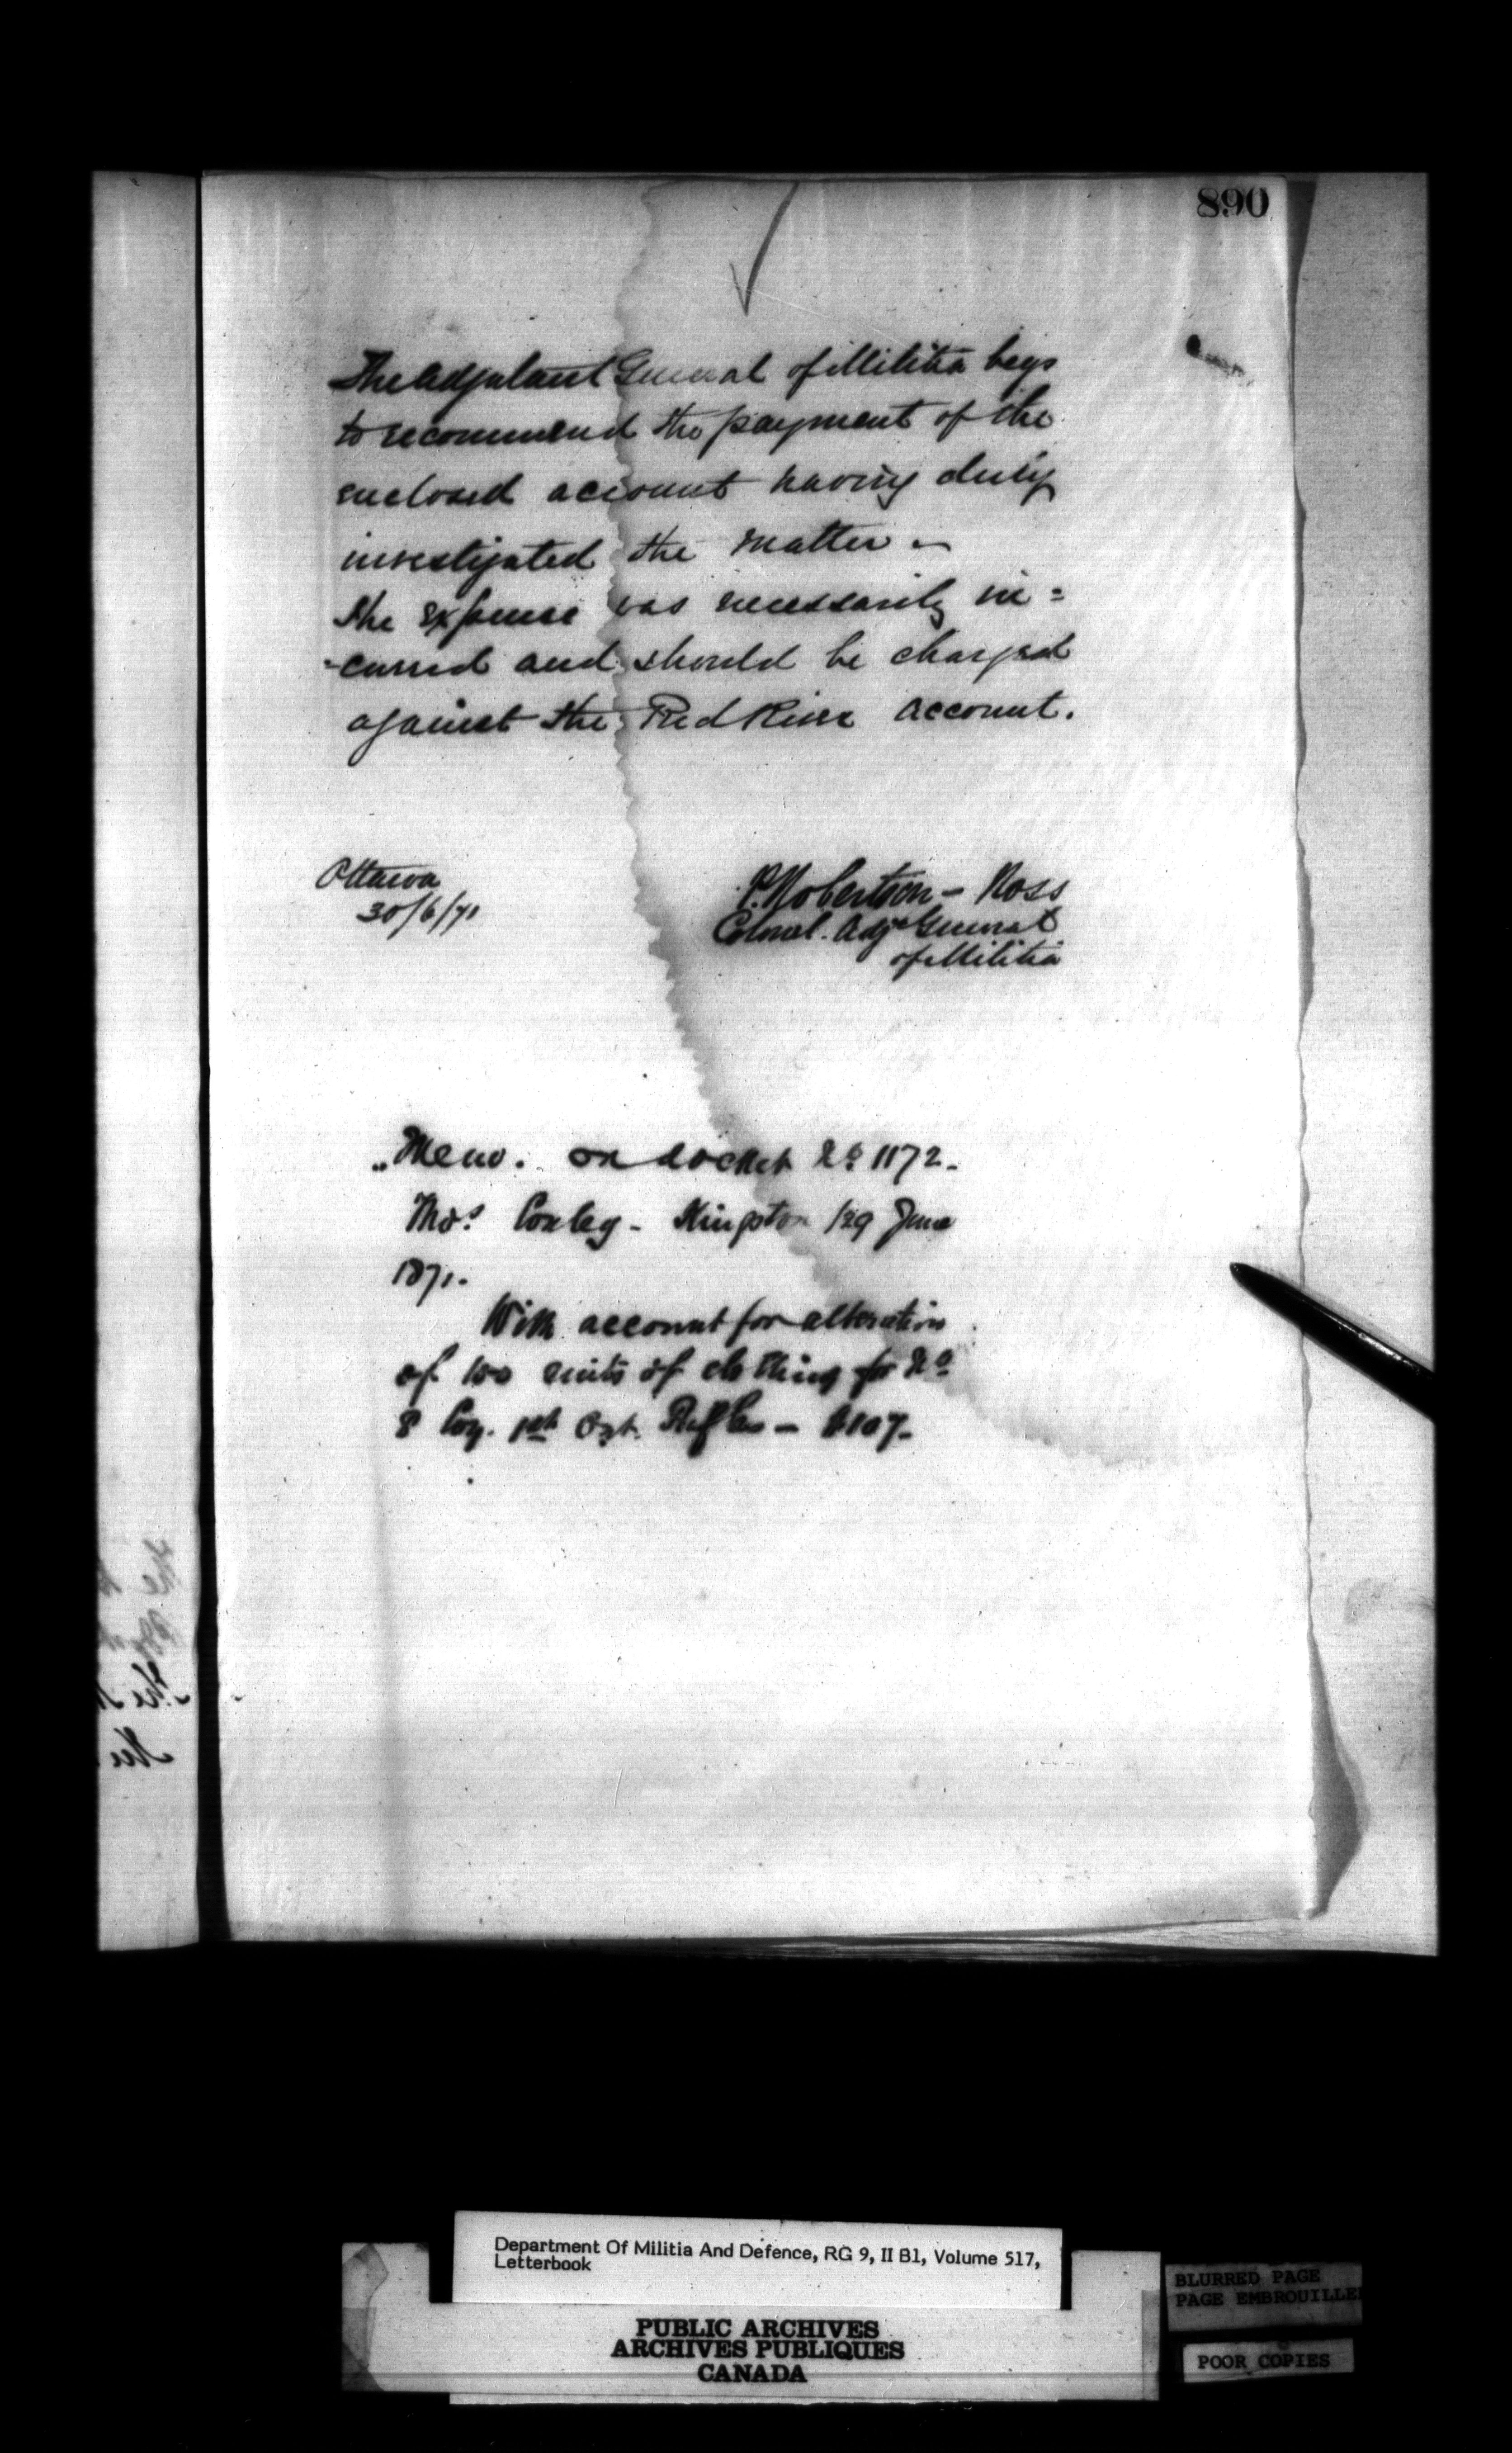 890
The Adjutant General of Militia begs
to recommend the payment of the
enclosed account having duly
investigated the matter –
the expense was necessarily in=
=curred and should be charged
against the Red River account.
Ottawa
30/6/71
P. Robertson – Ross
Colonel. Adjt General
of Militia
„Memo. on docket No 1172 –
Thos. Conley – Kingston /29 June
1871.
With account for alteration
of 100 suits of clothing for No
8 Coy. 1st Ont. Rifles – $107 –
Department Of Militia And Defence, RG 9, II B1, Volume 517,
Letterbook
PUBLIC ARCHIVES
ARCHIVES PUBLIQUES
CANADA
BLURRED PAGE
PAGE EMBROUILLE
POOR COPIES